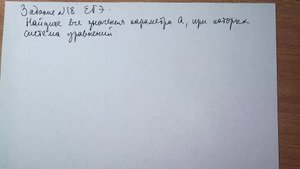 Задание №18 ЕГЭ.
Найдите все значения параметра А, при которых
система уравнений